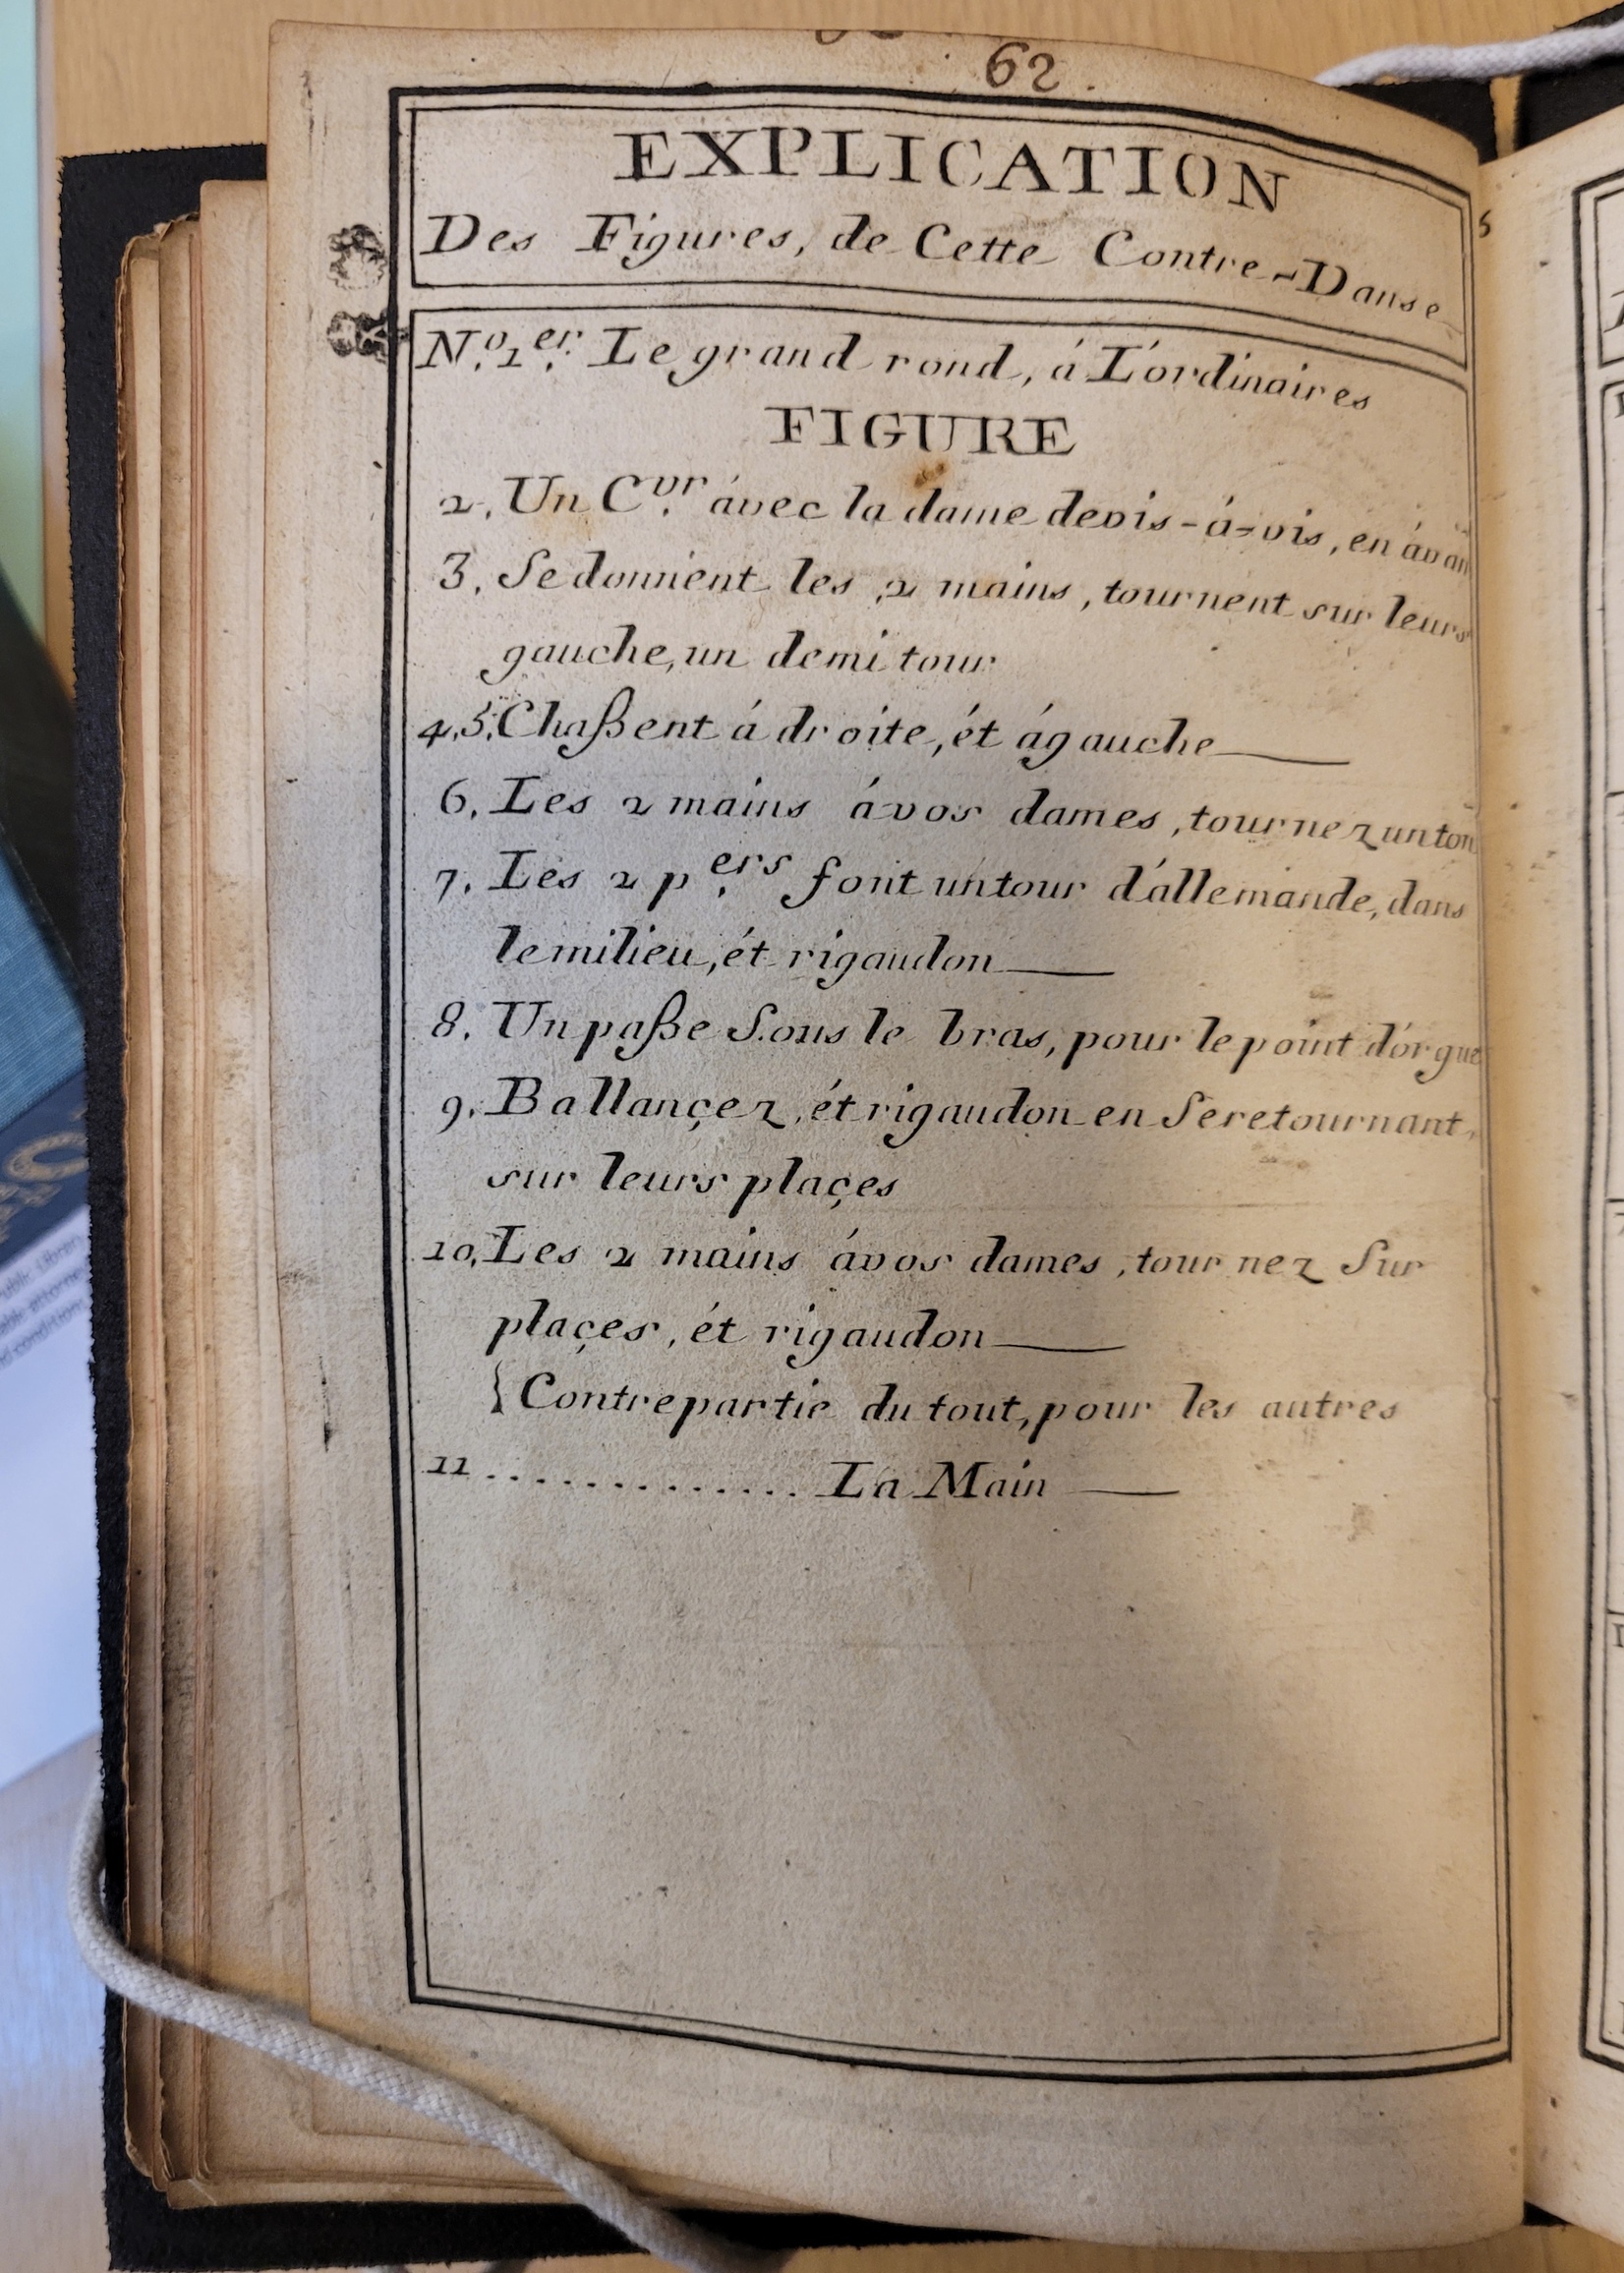 62.
EXPLICATION
Des Figures, de Cette Contre-Danse
N.º 1.er Le grand rond, á L'ordinaires
FIGURE
2. Un C.vr ávec la dame devis-á-vis, en ávan
3. Se donnent les 2 mains, tournent sur leurs
gauche, un demi tour
4.5. Chaßent á droite, ét ágauche
6. Les 2 mains ávos dames, tournez un tour
7. Les 2 p.ers font un tour d'állemande, dans
le milieu, ét rigaudon
8. Un paße Sous le bras, pour le point d'orgue
9. Ballançez, ét rigaudon en Se retournant,
sur leurs plaçes
10. Les 2 mains ávos dames, tournez Sur
plaçes, ét rigaudon
{ Contrepartie du tout, pour les autres
11 .............. La Main